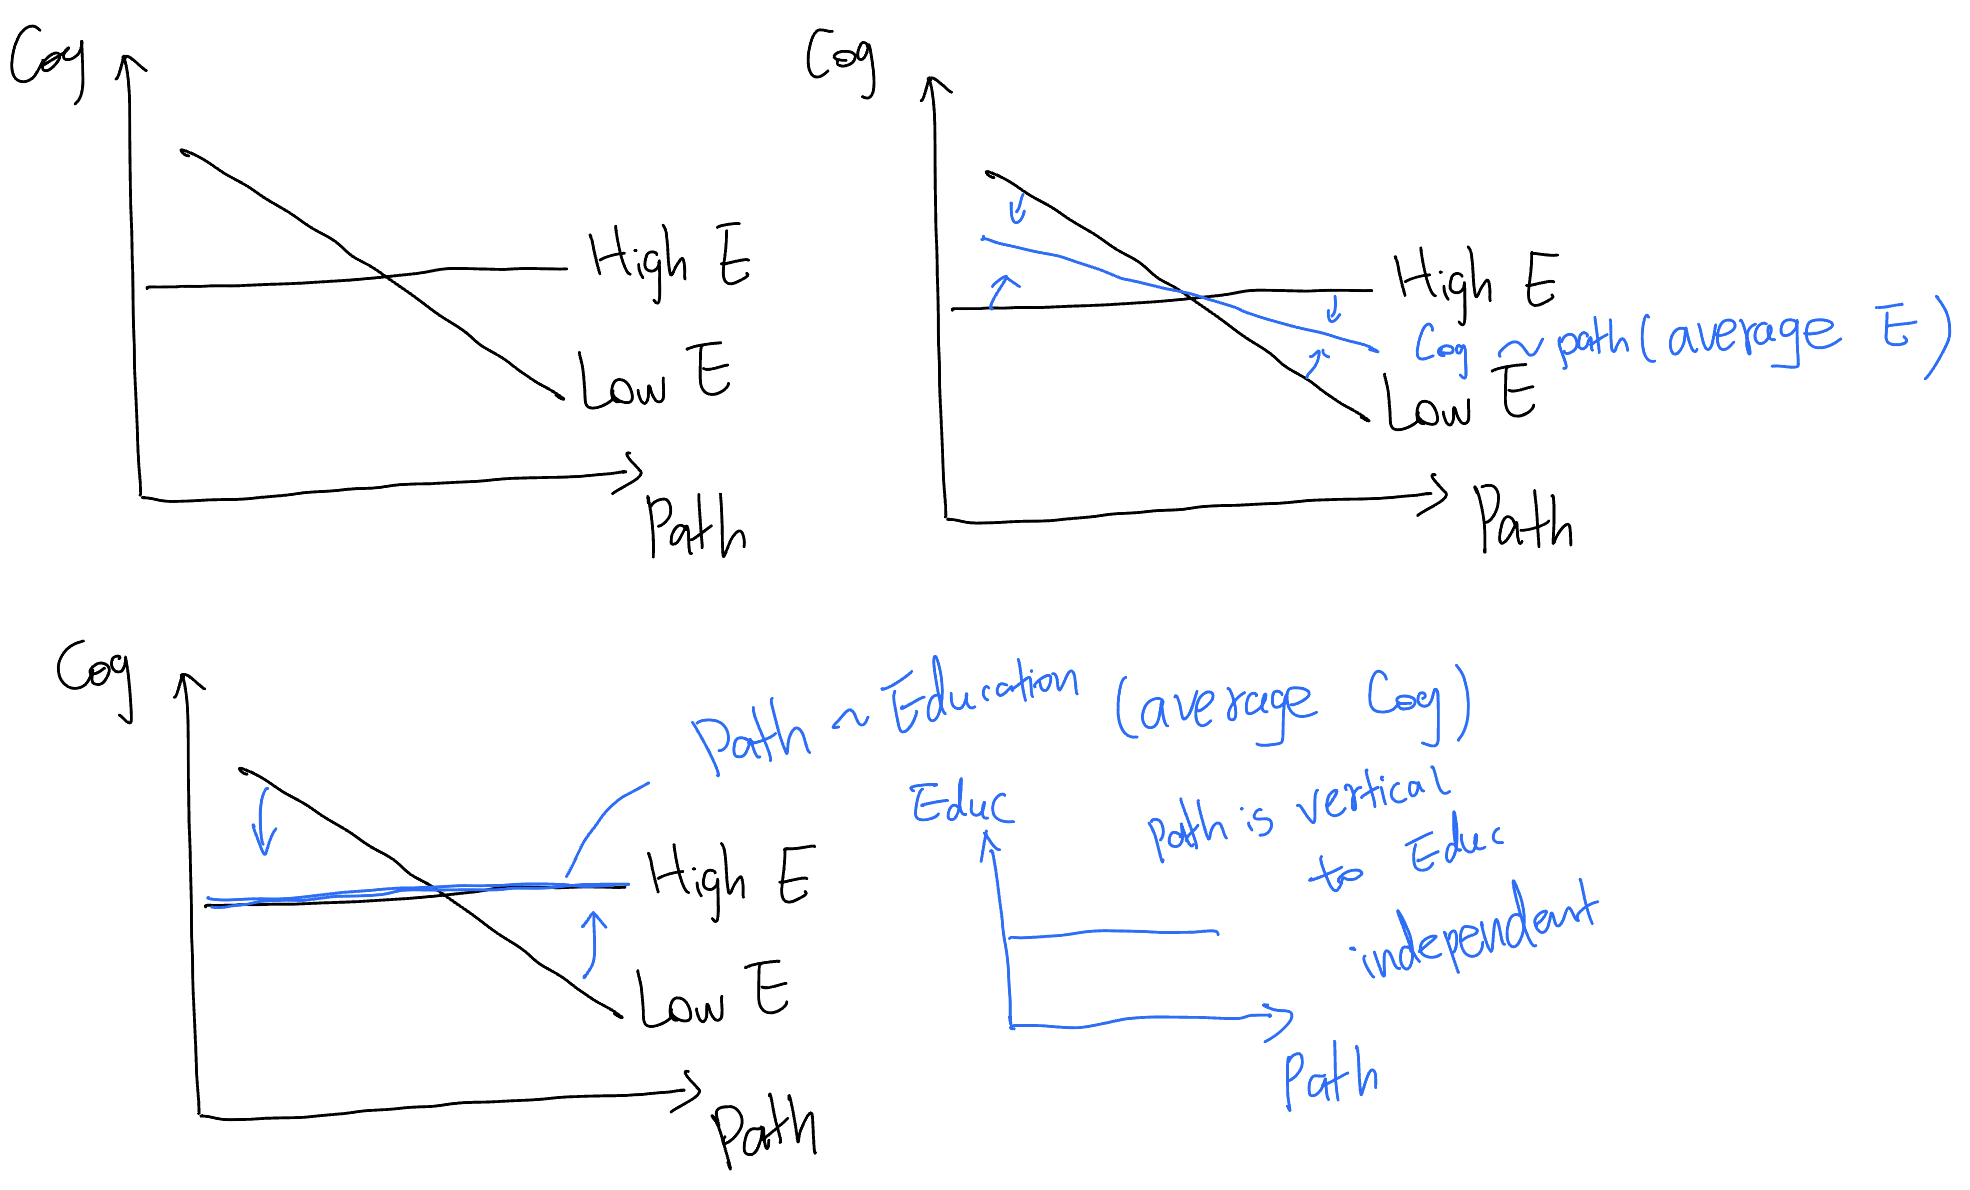 Cog
High E
Low E
Path
Cog
High E
Cog ~ path (average E)
Low E
Path
Cog
Path ~ Education (average Cog)
High E
Low E
Path
Educ
Path is vertical
to Educ
independent
Path